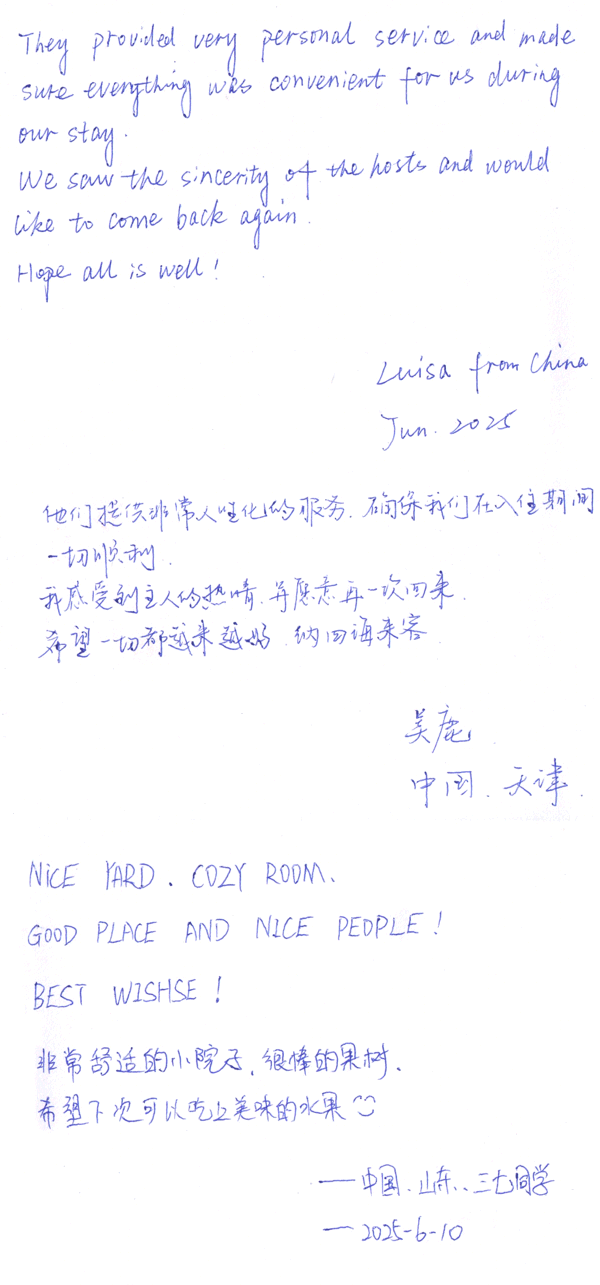 They provided very personal service and made
sure everything was convenient for us during
our stay.
We saw the sincerity of the hosts and would
like to come back again.
Hope all is well!
Luisa from China
Jun. 2025
他们提供非常人性化的服务.确保我们在入住期间
一切顺利.
我感受到主人的热情.并愿意再一次回来.
希望一切都越来越好.纳四海来客.
吴鹿
中国.天津.
NICE YARD. COZY ROOM.
GOOD PLACE AND NICE PEOPLE!
BEST WISHSE!
非常舒适的小院子,很棒的果树.
希望下次可以吃上美味的水果
——中国.山东..三七同学
—2025-6-10